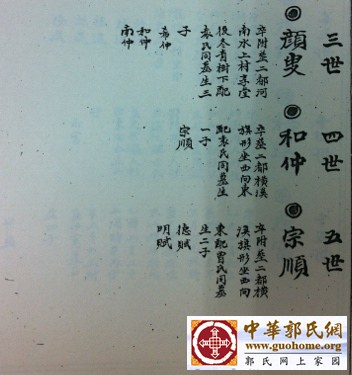 三世
顏叟
卒附葬二都河
南水上村享堂
後冬青樹下配
袁氏同墓生三
子
希仲
和仲
南仲
四世
和仲
卒葬二都橫溪
旗形坐西向東
配袁氏同墓生
一子
宗順
五世
宗順
卒附葬二都橫
溪旗形坐西向
東配曾氏同墓
生二子
德賦
明賦
中華郭氏網
www.guohome.org
郭氏网上家园